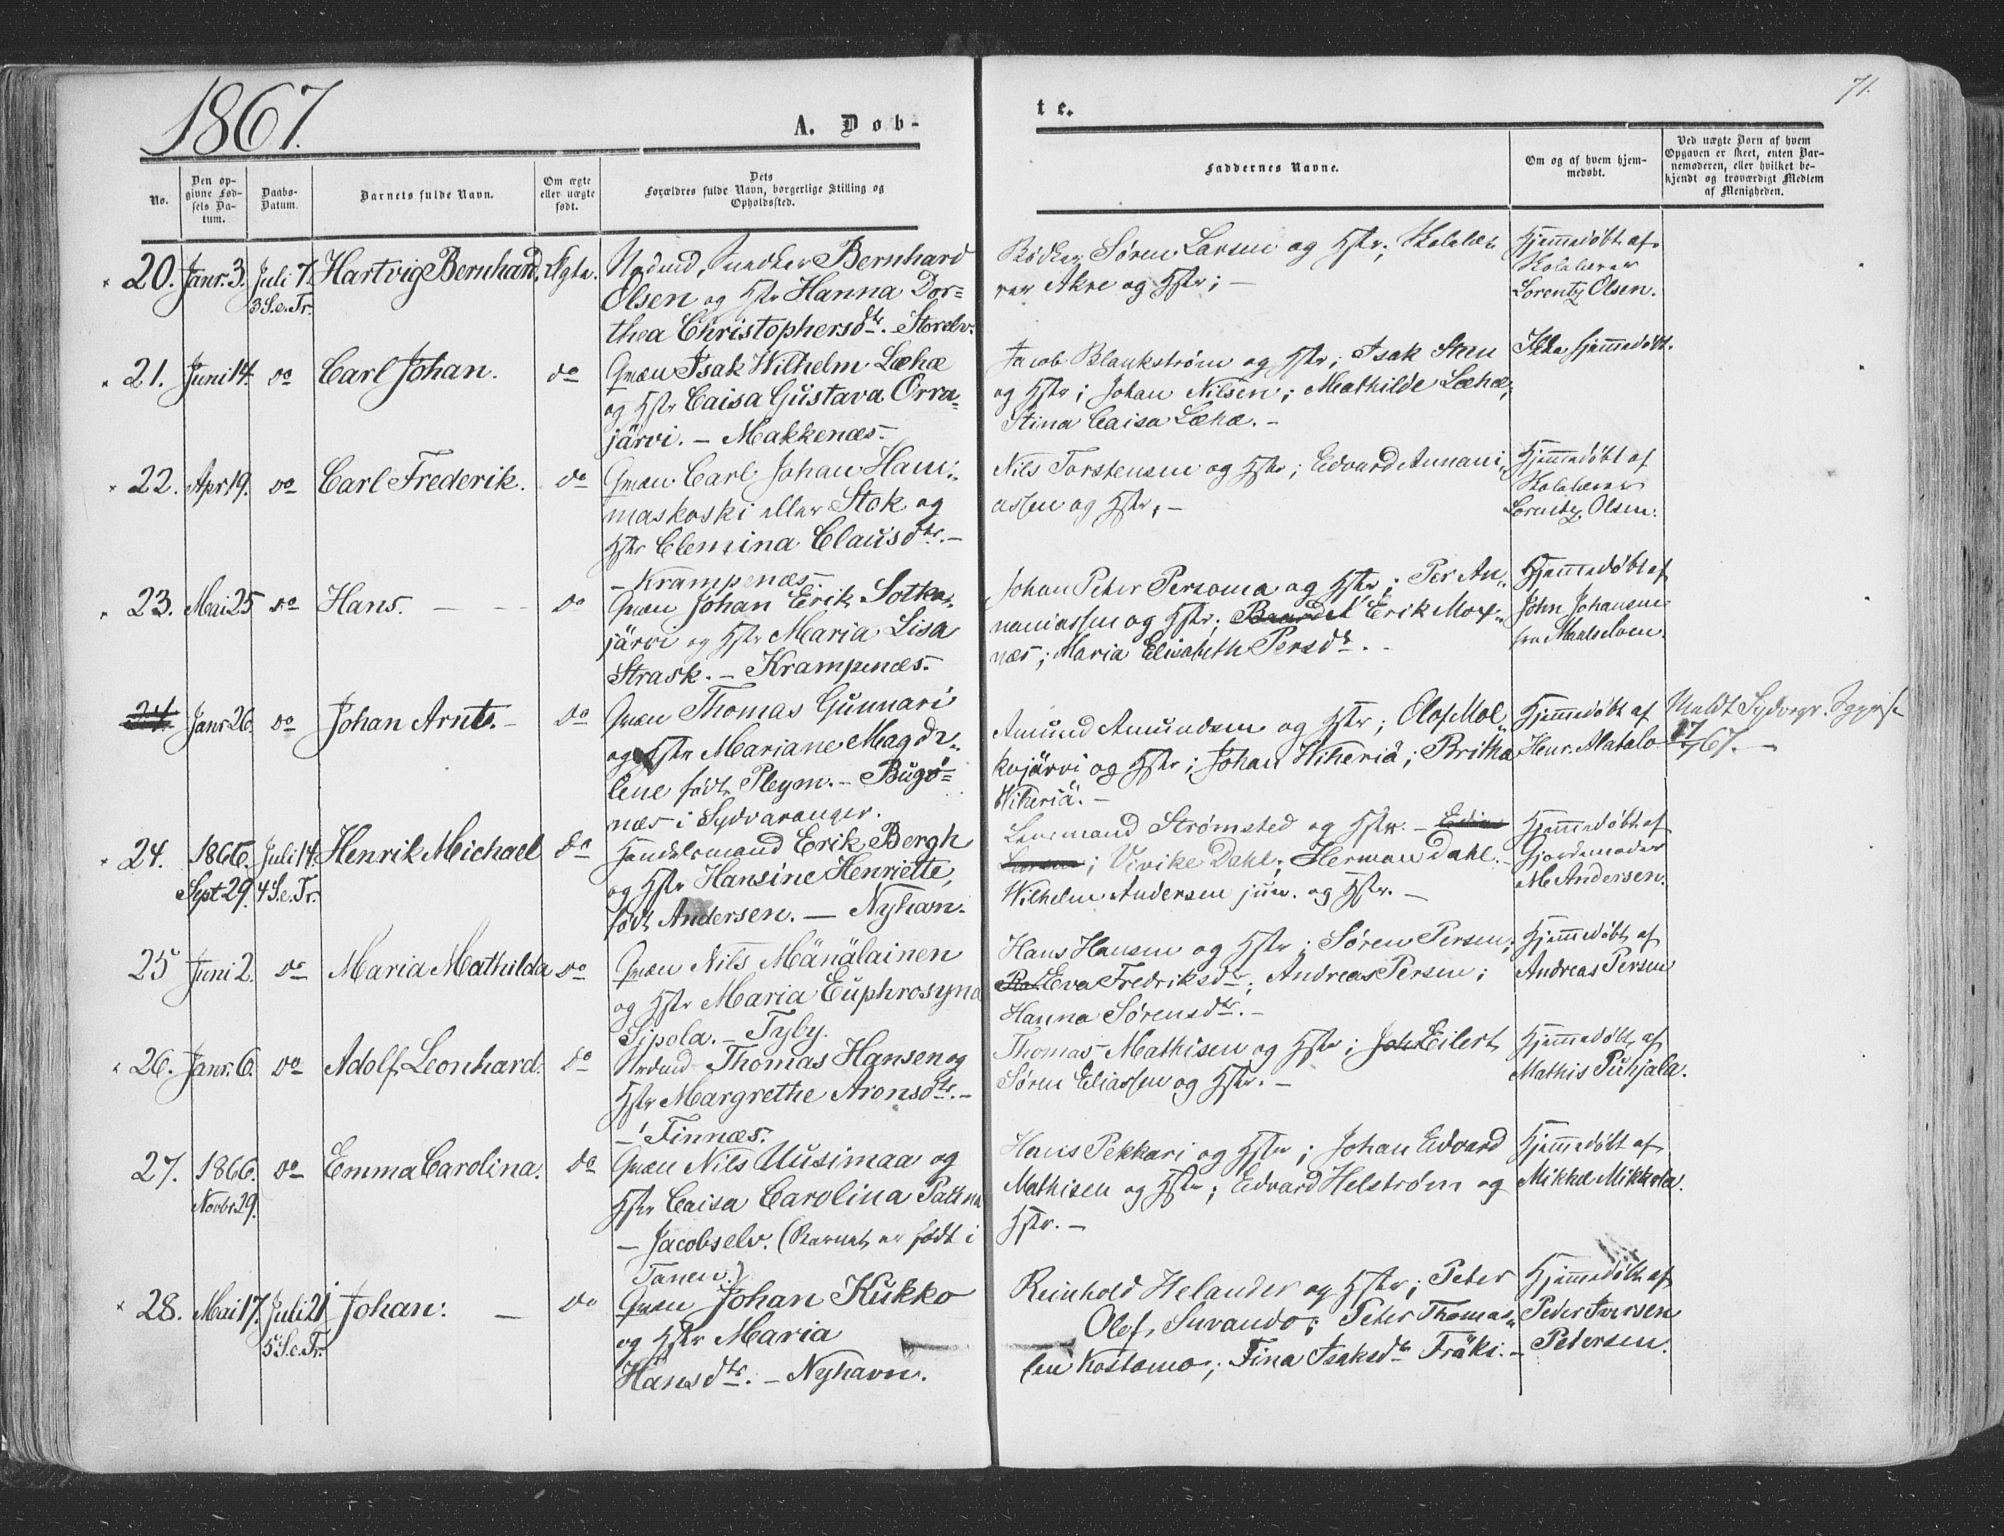 1867.
A. Døb-
te.
71.
No.
Den op-
givne Fød-
sels Da-
tum.
Daabs-
Datum.
Barnets fulde Navn.
Om ægte
eller uægte
født.
Dets
Forældres fulde Navn, borgerlige Stilling og
Opholdssted.
Faddernes Navne.
Om og af hvem hjem-
medøbt.
Ved uægte Børn af hvem
Opgaven er skeet, enten Bar-
nemoderen, eller hvilket be-
kjendt og troværdigt Medlem
af Menigheden.
20. Janr. 3. Juli 7. Hartvig Bernhard. Ægte. Bernhard
3 S.e.Tr.
Olsen og Hstr Hanna Dor-
thea Christophersdtr. Storelv.
Bødker Søren Larsen og Hstr; Skolelæ-
rer Akre og Hstr; —
Hjemmedøbt af
Skolelærer
Lorentz Olsen.
21. Juni 14. do Carl Johan. do Qvæn Isak Wilhelm Læhæ
og Hstr Caisa Gustava Orra-
järvi. — Makkenæs.
Jacob Blankstrøm og Hstr; Isak Sten
og Hstr; Johan Nilsen; Mathilde Læhæ;
Stina Caisa Læhæ. —
Ikke hjemmedøbt.
22. Apr 19. do Carl Frederik. do Qvæn Carl Johan Ham-
maskoski eller Stok og
Hstr Clemina Clausdtr. —
— Krampenæs.
Nils Torstensen og Hstr; Edvard Annani-
assen og Hstr. —
Hjemmedøbt af
Skolelærer
Lorentz Olsen.
23. Mai 25 do Hans. — — do Qvæn Johan Erik Sotka-
järvi og Hstr Maria Lisa
Strask. — Krampenæs.
Johan Peter Persoma og Hstr; Per An-
naniassen og Hstr; Erik Mox-
næs; Maria Elisabeth Persdtr. —
Hjemmedøbt af
John Johansen
fra Maalselven.
24. Janr. 26. do Johan Arnts. — do Qvæn Thomas Gunnari
og Hstr Mariane Magda-
lene født Pleym. — Bugø-
næs i Sydvaranger.
Amund Amundsen og Hstr; Olof Mol-
kojärvi og Hstr; Johan Wikeriä; Britha
Wikeriä. —
Hjemmedøbt af
Henr. Matalo
Meldt Sydvgr.
17/7 67. —
24. 1866. Juli 14. Henrik Michael do Handelsmand Erik Bergh
Sept 29. 4 S.e.Tr.
og Hstr Hansine Henriette,
født Andersen. — Nyhavn.
Lensmand Strømsted og Hstr. —
; Vivike Dahl; Herman Dahl. —
Wilhelm Andersen jun. og Hstr. —
Hjemmedøbt af
Gjordemoder
M. Andersen.
25 Juni 2. do Maria Mathilda do Qvæn Nils Mänäläinen
og Hstr Maria Euphrosyna
Sipola. — Tyby.
Hans Hansen og Hstr; Søren Persen;
Eva Fredriksdtr; Andreas Persen;
Hanna Sørensdtr. —
Hjemmedøbt af
Andreas Persen
26. Janr. 6. do Adolf Leonhard. do Thomas Hansen og
Hstr Margrethe Aronsdtr. —
— Finnæs.
Thomas Mathisen og Hstr; Joh Eilert
Søren Eliassen og Hstr. —
Hjemmedøbt af
Mathis Puhjala.
27. 1866. do Emma Carolina. do Qvæn Nils Uusimaa og
Novbr 29.
Hstr Caisa Carolina
— Jacobselv. (Barnet er født i
Tanen.)
Hans Pekkari og Hstr; Johan Edvard
Mathisen og Hstr; Edvard Helstrøm og
Hstr. —
Hjemmedøbt af
Mikkel Mikkola.
28. Mai 17. Juli 21 Johan: — do Qvæn Johan Kukko
5 S.e.Tr.
og Hstr Maria
Hansdtr. — Nyhavn.
Reinhold Helander og Hstr; Peter
Olof Suvando; Peter Thomas-
sen Kostamo; Fina Isaksdtr Fräki. —
Hjemmedøbt af
Peder Iversen
Petersen.